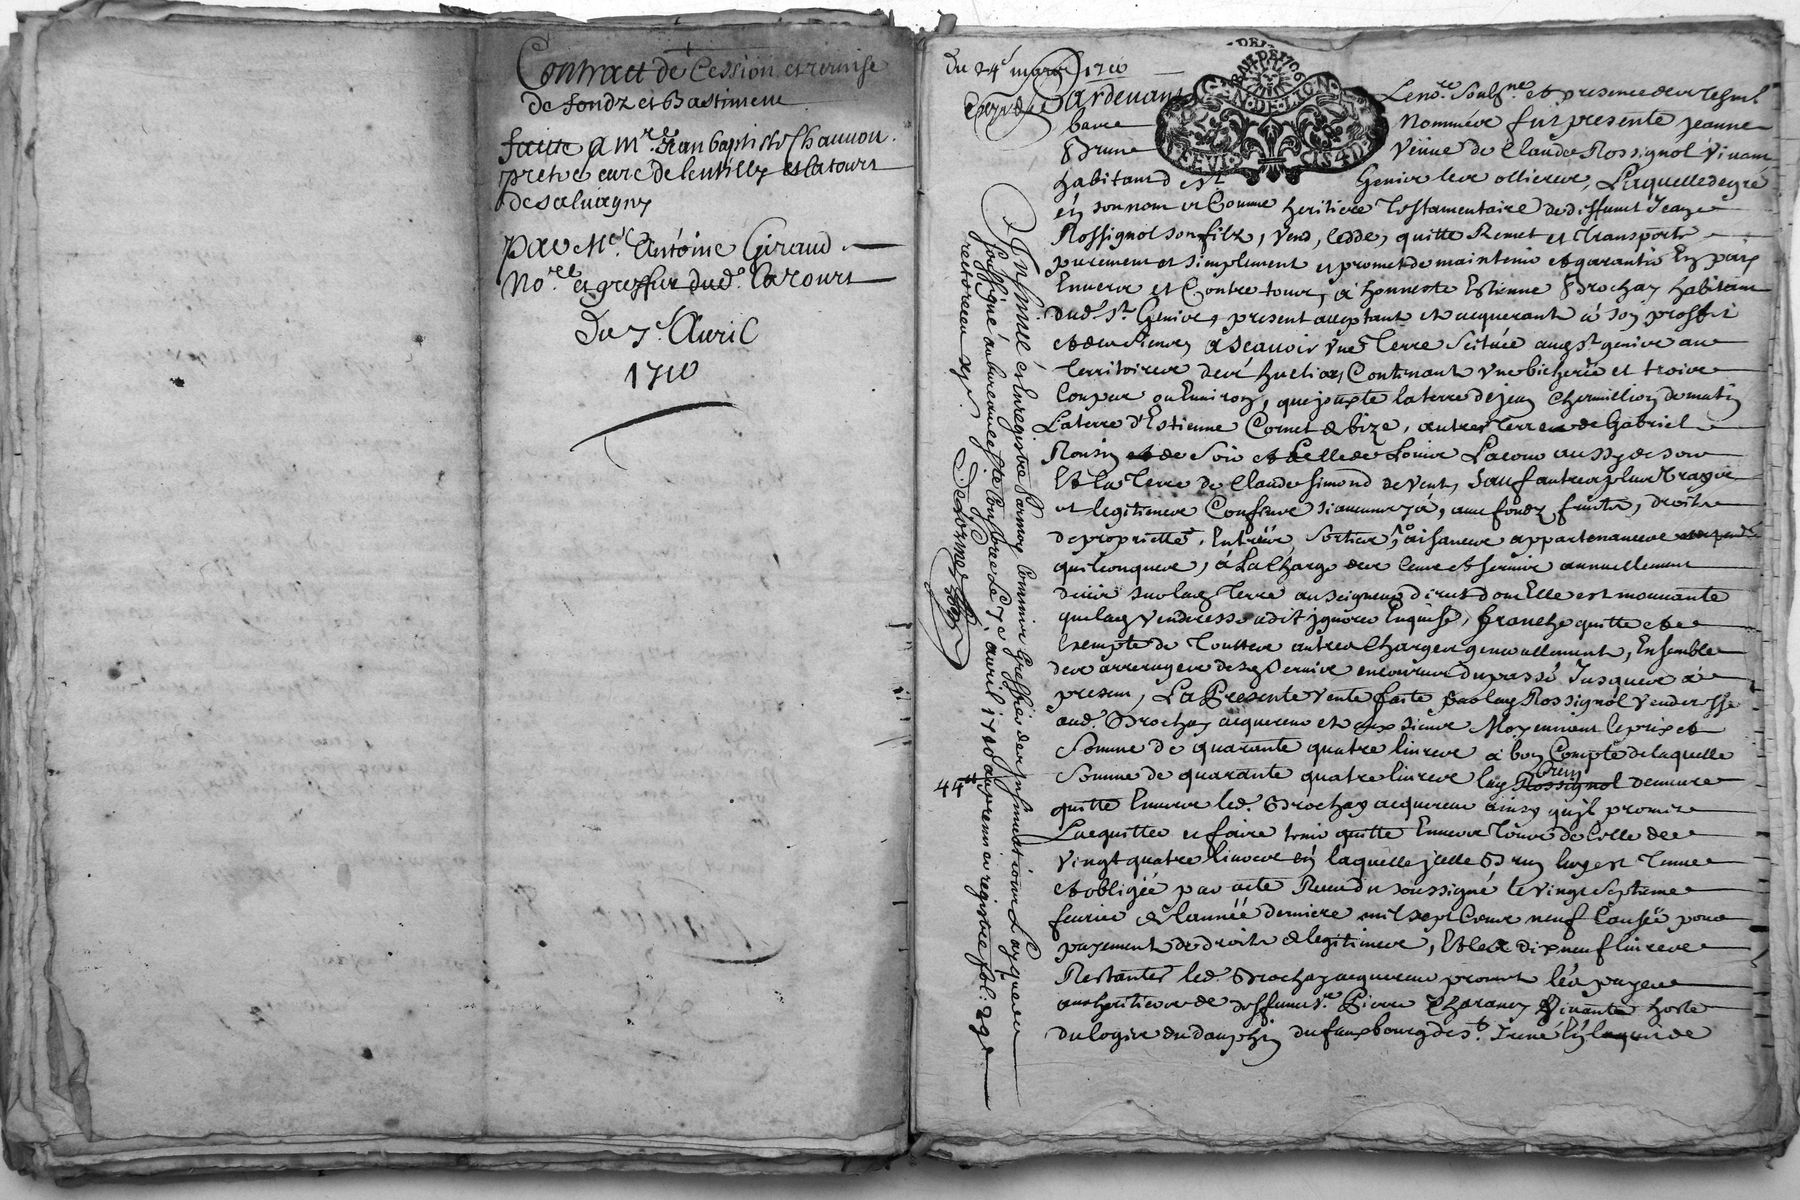 Contract de Cession et remise
de fondz et Bastiment
faitte a Mre Jean baptiste Chauuon
pretre curé de lentilly et latours
de saluagny
Par Me Antoine Giraud
Nore et greffier dud. Latours
Du 7e Auril
1710
Du 24e mars 1710
Pardeuant
Le nore soubzné et presence des tesm
bas
nommés fut presente jeanne
Brun
veuue de Claude Rossignol viuant
habitant d st
Geniue les ollieres, Laquelle de gré
en son nom et Comme heritiere testamentaire de deffunt Jean
Rossignol son filz, vend, cedde, quitte Remet et transporte
purement et simplement et promet de maintenir et garantir En paix
Enuers et Contre tous, a honneste Estienne Brochay habitant
dud. St Geniue, present acceptant et acquerant a son proffit
et des siens, a Scauoir vne Terre scituée aud st geniue au
territoire de Contenant vne bicherée et trois
Coupes ou Enuiron, que jouxte la terre de jean de matin
La terre d'Estienne Cornet de bize, autre terre de Gabriel
de Soir et Celle de Louis Lacour aussy de soir
Et la Terre de Claude Simond de vent, Sauf autres plus vrays
et legitimes Confins si aucuns y a, aue fondz fruits, droits
de proprietté, Entrées, Sorties, aisances appartenances
quelconques, a La Charge des Cens et seruis annuellement
deües sur lad Terre au seigneur direct dont Elle est mouuante
que lad Venderesse a dit ignorer Enquise, franche quitte et
Exempte de Touttes autres Charges generallement, Ensemble
des arrerages desd seruis encourus du passé Jusques a
present, La Presente vente faite par lad Rossignol venderesse
aud. Brochay acquereur et aux siens Moyennant le prix et
Somme de quarante quatre liures a bon Compte de laquelle
Brun
Somme de quarante quatre liures lad Rossignol demeure
44lt
quitte Enuers led. Brochay acquereur ainsy qu'il promis
Lacquitter et faire tenir quitte Enuers Tous de Celle de
Vingt quatre liures En laquelle jcelle Brun luy est Tenue
et obligée par acte Receu du soussigné le vingt septieme
feurier de l'année derniere mil sept Cents neuf Causée pour
payement de droits de legitimes, Et les dix neuf liures
Restantes led. Brochay acquereur promet les payer
aux heritiers de deffunt sr Pierre Viuant hoste
du logis du dauphin du fauxbourg de st. Irené
Insinué et Enregistré Par moy Commis Greffier des Insinuations Laiques
soussigné au bureau de Le 7e. auril 1710 au premier registre fol: 29
receu